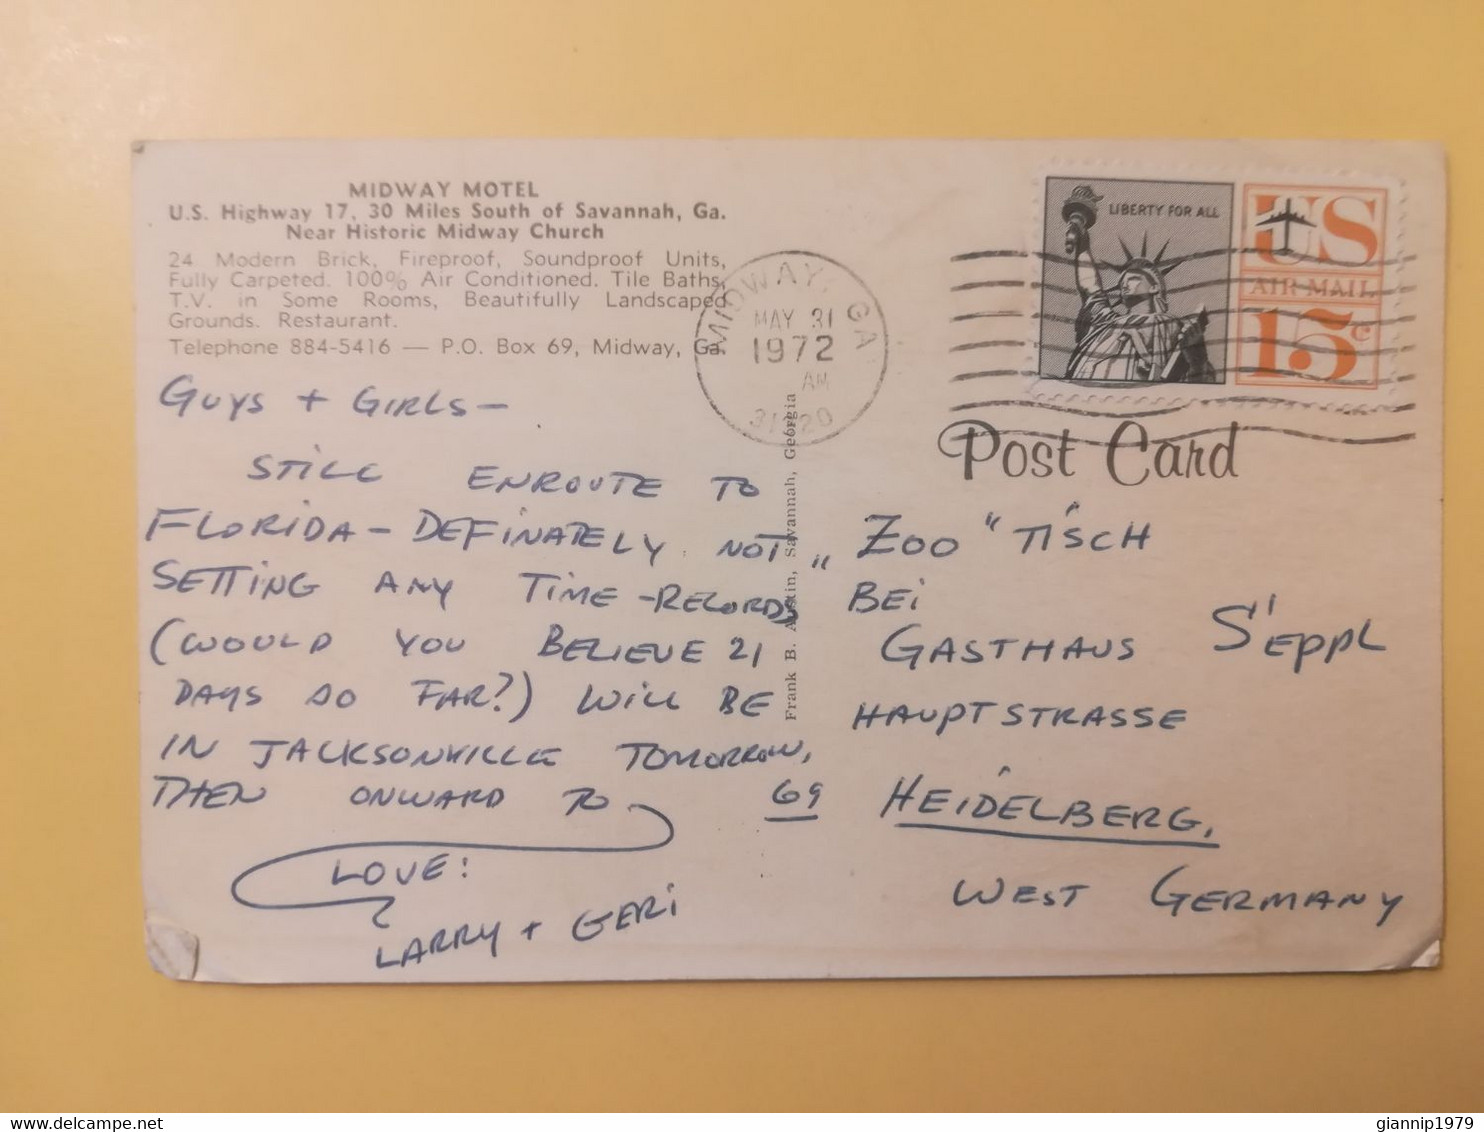 MIDWAY MOTEL
U.S. Highway 17, 30 Miles South of Savannah, Ga.
Near Historic Midway Church
24 Modern Brick, Fireproof, Soundproof Units,
Fully Carpeted. 100% Air Conditioned. Tile Baths,
T.V. in Some Rooms, Beautifully Landscaped
Grounds. Restaurant.
Telephone 884-5416 — P.O. Box 69, Midway, Ga.
GUYS + GIRLS —
STILL ENROUTE TO
FLORIDA — DEFINATELY NOT
SETTING ANY TIME-RECORDS
(WOULD YOU BELIEVE 21
DAYS SO FAR?) WILL BE
IN JACKSONVILLE TOMORROW,
THEN ONWARD TO
LOVE:
LARRY + GERI
Frank B. Austin, Savannah, Georgia
MIDWAY, GA
MAY 31
1972
AM
31320
LIBERTY FOR ALL
US
AIR MAIL
15c
Post Card
„ZOO“ TISCH
BEI
GASTHAUS S'EPPL
HAUPTSTRASSE
69 HEIDELBERG,
WEST GERMANY
delcampe.net
giannip1979